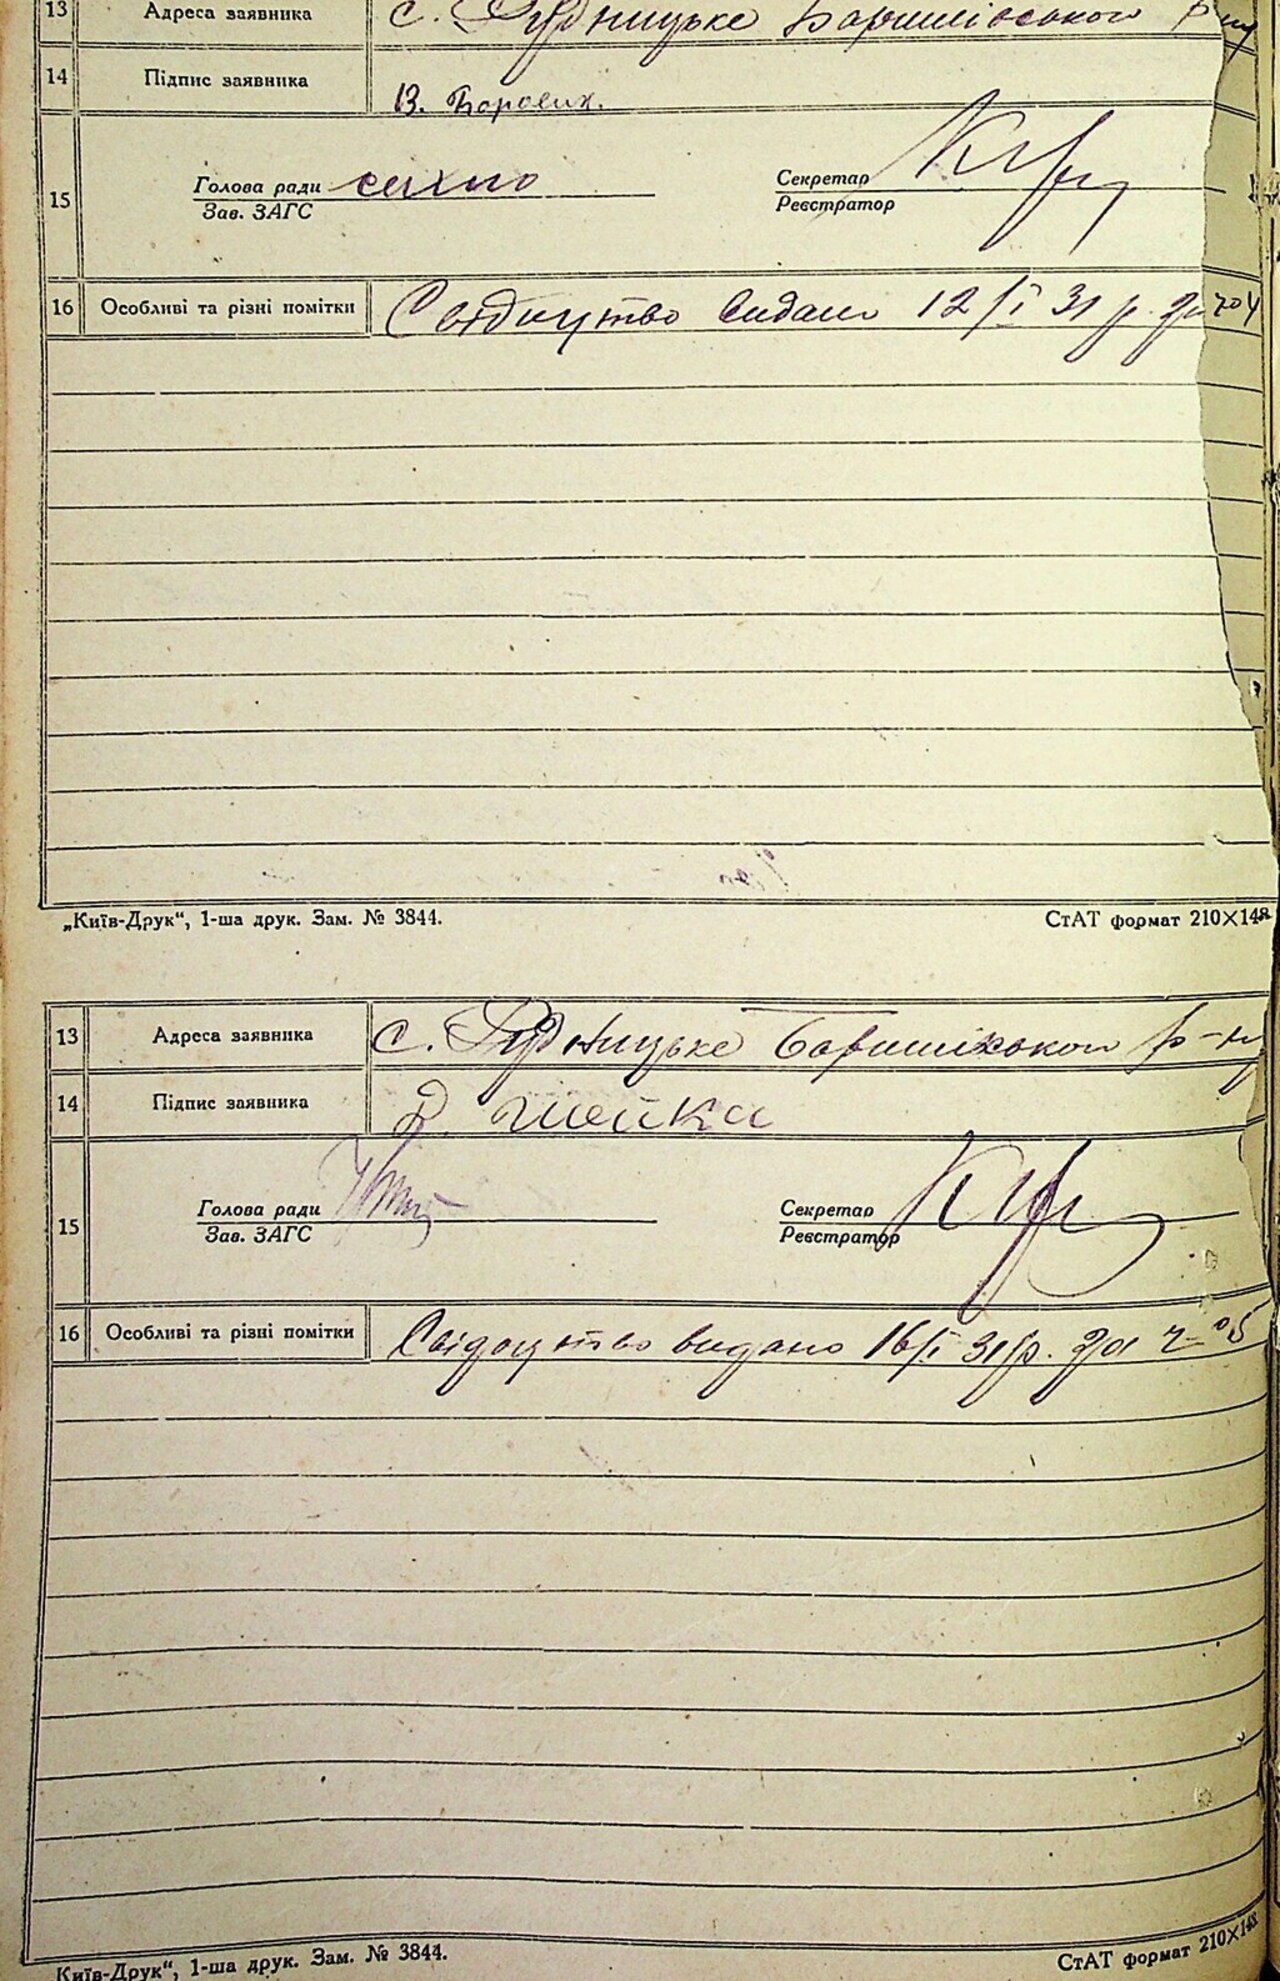 13 Адреса заявника с. Рудницьке Баришівського р-ну
14 Підпис заявника В. Боровик.
15 Голова ради сахно Секретар
Зав. ЗАГС Реєстратор
16 Особливі та різні помітки Свідоцтво видано 12/I 31 р. за № 04
„Київ-Друк“, 1-ша друк. Зам. № 3844. СтАТ формат 210×148
13 Адреса заявника с. Рудницьке Баришівського р-ну
14 Підпис заявника Д. шейка
15 Голова ради Секретар
Зав. ЗАГС Реєстратор
16 Особливі та різні помітки Свідоцтво видано 16/I 31 р. за № 05
Київ-Друк“, 1-ша друк. Зам. № 3844. СтАТ формат 210×148